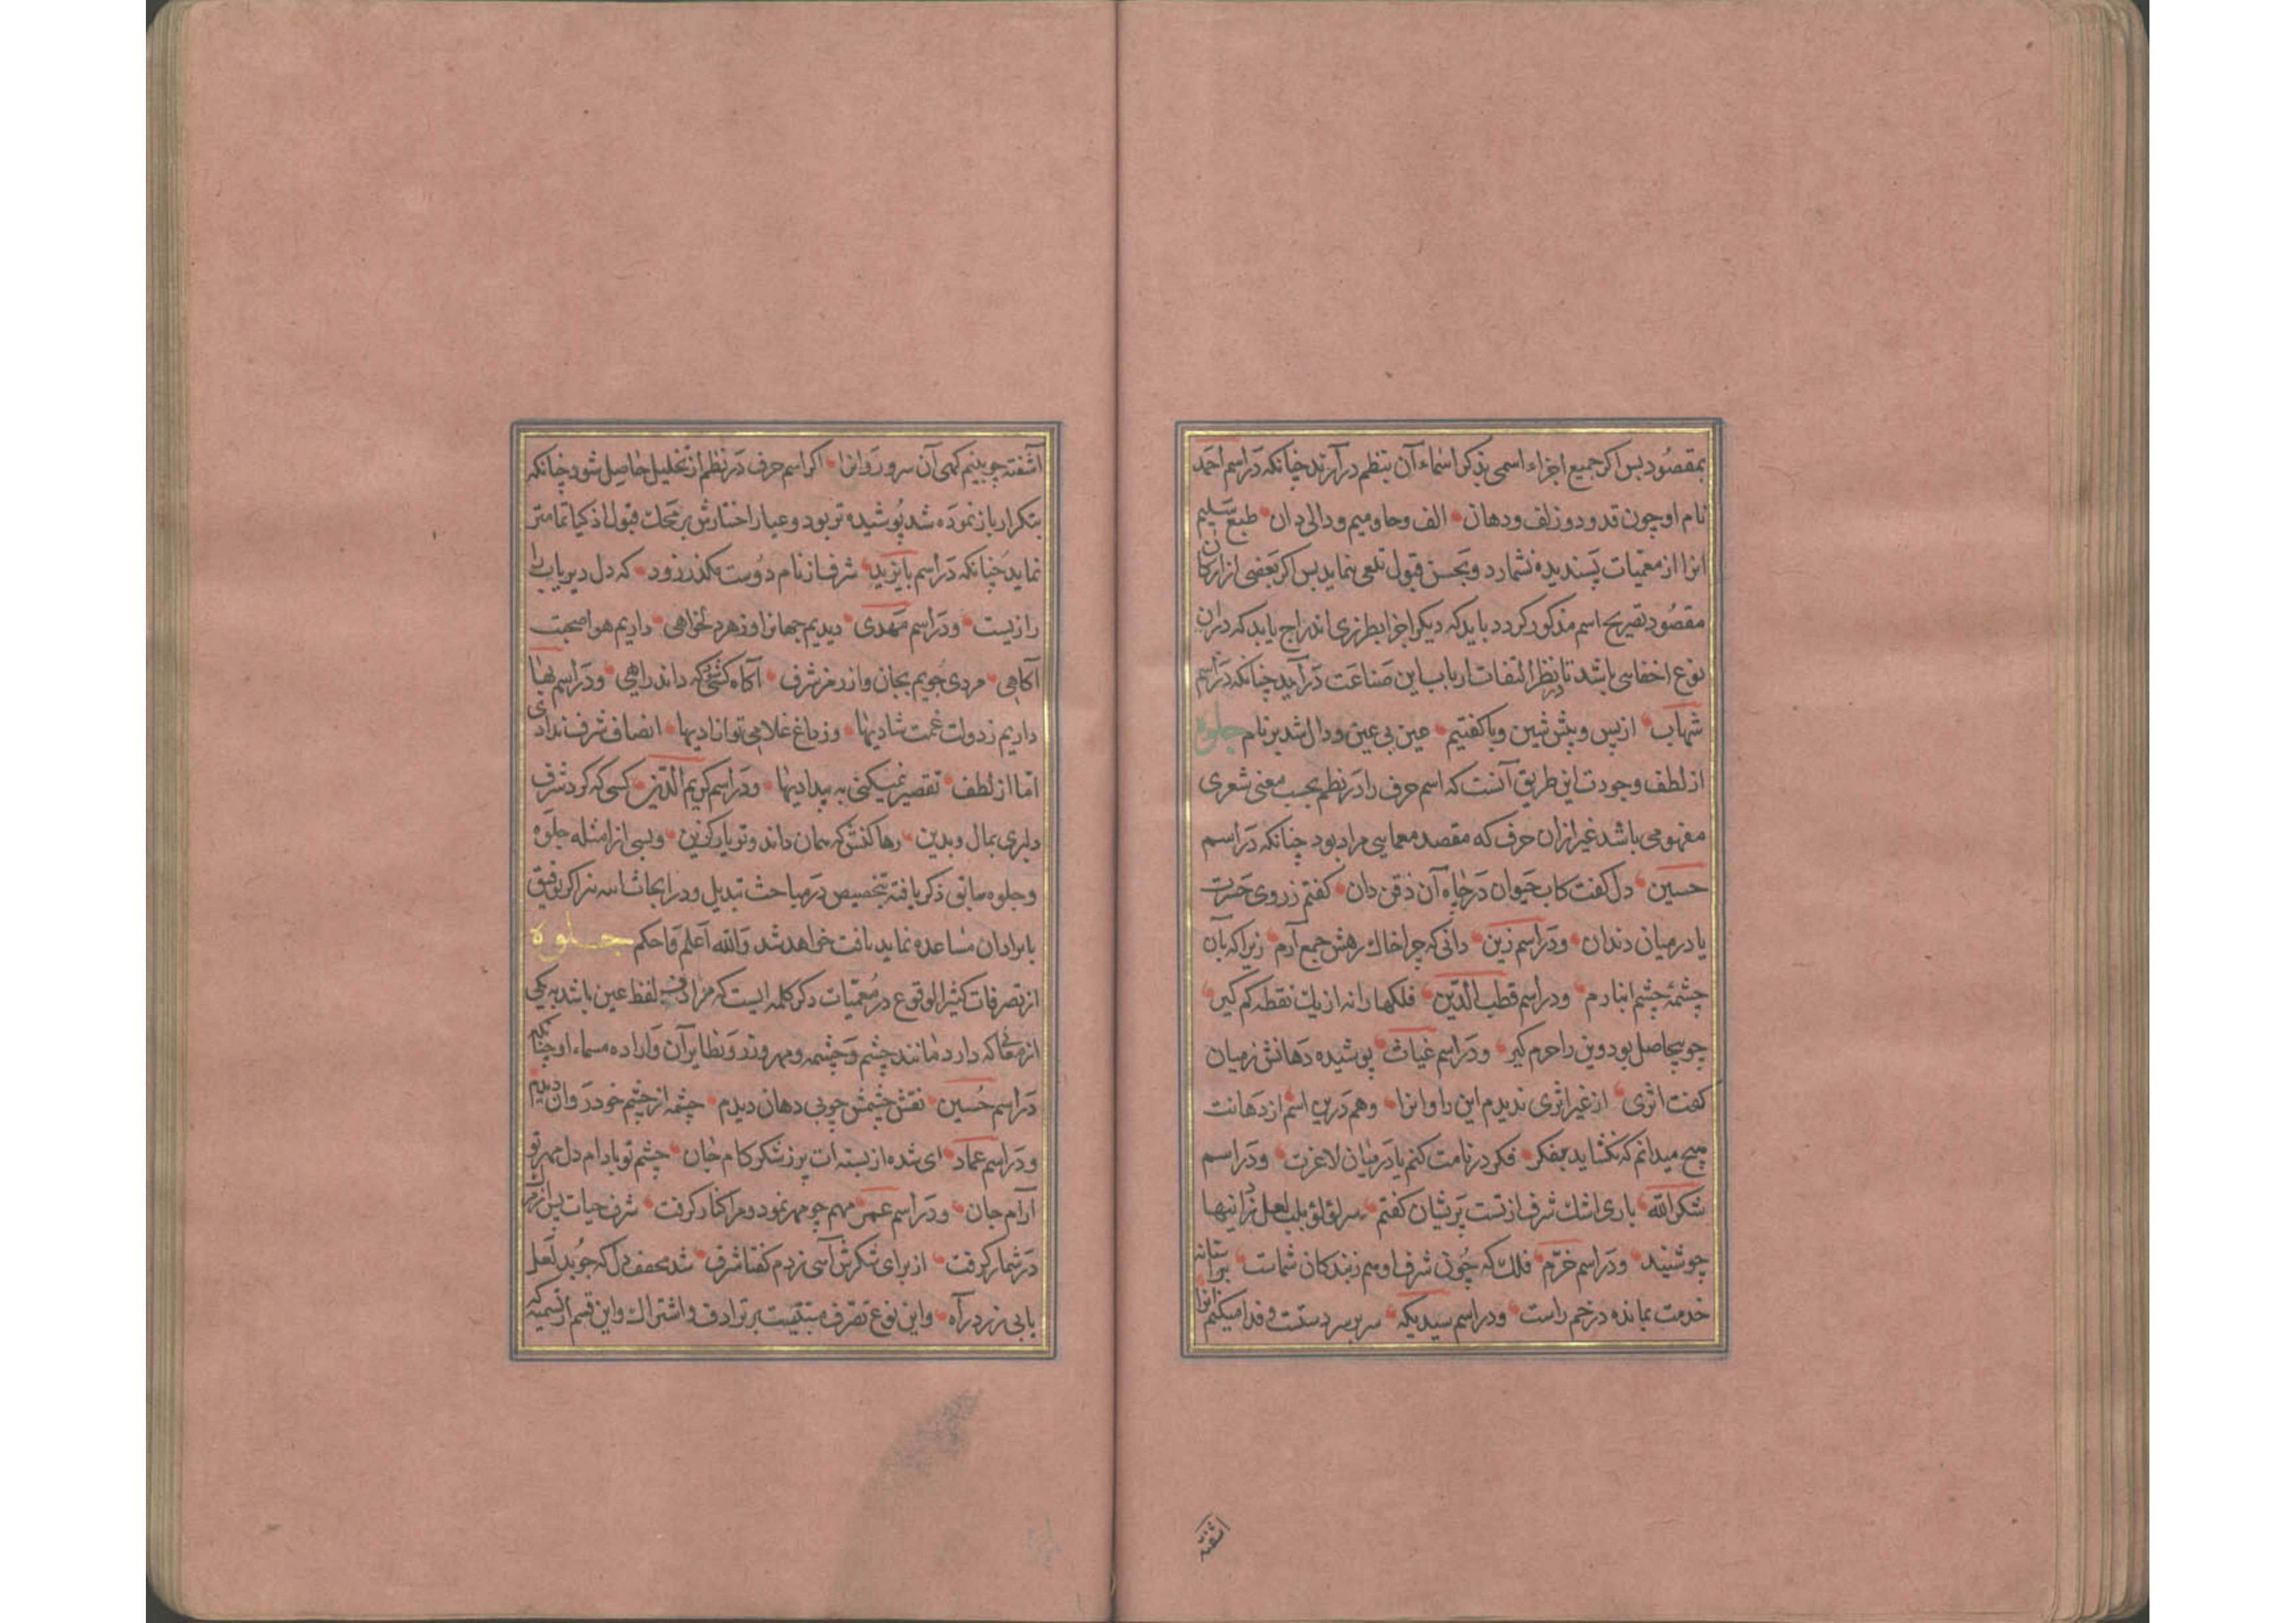 بمقصود بس اکر جمیع اجزاء اسمی بذکر اسماء آن بنظم درآرند چنانکه در اسم احمد
نام او چون قد و دو زلف و دهان الف و حا و میم و دالی دان طبع سلیم
انرا از معمیات پسندیده نشمارد و بحسن قبول تلقی ننماید بس اکر بعضی از ارکان
مقصود بتصریح اسم مذکور کردد باید که دیکر اجزا بطرزی اندراج یابد که دران
نوع اخفایی باشد تا بنظر التفات ارباب این صناعت درآید چنانکه در اسم
شهاب از پس و پیش شین و با کفتیم عین بی عین و دال شد بر نام جلوه
از لطف وجودت این طریق آنست که اسم حرف را در نظم بحسب معنی شعری
مفهومی باشد غیر ازان حرف که مقصد معمایی مراد بود چنانکه در اسم
حسین دل کفت کاب حیوان در چاه آن ذقن دان کفتم ز روی حسرت
یا در میان دندان و در اسم زین دانی که چرا خاک رهش جمع آرم زیرا که بآن
چشمهٔ چشم انبارم و در اسم قطب الدین فلکها را نه از یک نقطه کم کیر
چو بیحاصل بود وین را حرم کیر و در اسم غیاث پوشیده دهانش ز میان
کفت اثری از غیر اثری ندیدم این را و انرا و هم درین اسم از دهانت
هیچ میدانم که نکشاید بفکر فکر در نامت کنم یا در میان لاغرت و در اسم
شکرالله باری اشک شرف از تست پریشان کفتم سر لؤلؤ بلب لعل تو زانیها
چو شنید و در اسم خرم فلک که چون شرف او هم ز بندکان شماست بر استانهٔ
خدمت بمانده در خم راست و در اسم سیدیکه سر بر سر دستت و فدا میکنم انرا
اشفته
آشفته چو بینم کهی آن سرو روانرا اکر اسم حرف در نظم از تحلیل حاصل شود چنانکه
بتکرار باز نموده شد پوشیده تر بود و عیار اختبارش بر محک قبول اذکیا تمامتر
نماید چنانکه در اسم بایزید شرف از نام دوست مکذر زود که دل دیریاب را
رازیست و در اسم مهدی دیدیم جهانرا و ز هر دلخواهی داریم هوا صحبت
آکاهی مردی جویم بجان و اندر مز شرف آکاه کسی که داند راهی و در اسم بها
داریم ز دولت غمت شادیها وز داغ غلامی تو ازادیها انصاف شرف نداد
اما از لطف تقصیر نمیکنی به بیدادیها و در اسم کریم الدین کسی که کرد شرف
دلبری بمال و بدین رها کنش که همان داند و تو یار کزین و بسی از امثله جلوه
و جلوه سابق ذکر یافته بتخصیص در مباحث تبدیل و در ابحاث اتیه نیز اکر توفیق
بایراد آن مساعده نماید یافت خواهد شد والله أعلم وأحکم جلوه
از تصرفات کثیر الوقوع در معمیات ذکر کلمه ایست که مرادف لفظ عین باشد به یکی
از معانی که دارد مانند چشم و چشمه و مهر و زر و نظایر آن و اراده مسماء او چنانکه
در اسم حسین نقش چشمش چو بی دهان دیدم چشمه از چشم خود روان دیدم
و در اسم عماد ای شده از پسته ات پر ز شکر کام جان چشم تو بادام دل مهر تو
آرام جان و در اسم عمر مهم چو مهر نمود و مرا کنار کرفت شرف حیات پس از
در شمار کرفت از برای شکرش آسی زدم کفتا شرف شد مخفف دل که جوید لعل
یابی زر در آه و این نوع تصرف مبتنیست بر ترادف و اشتراک و این قسم از تسمیه که